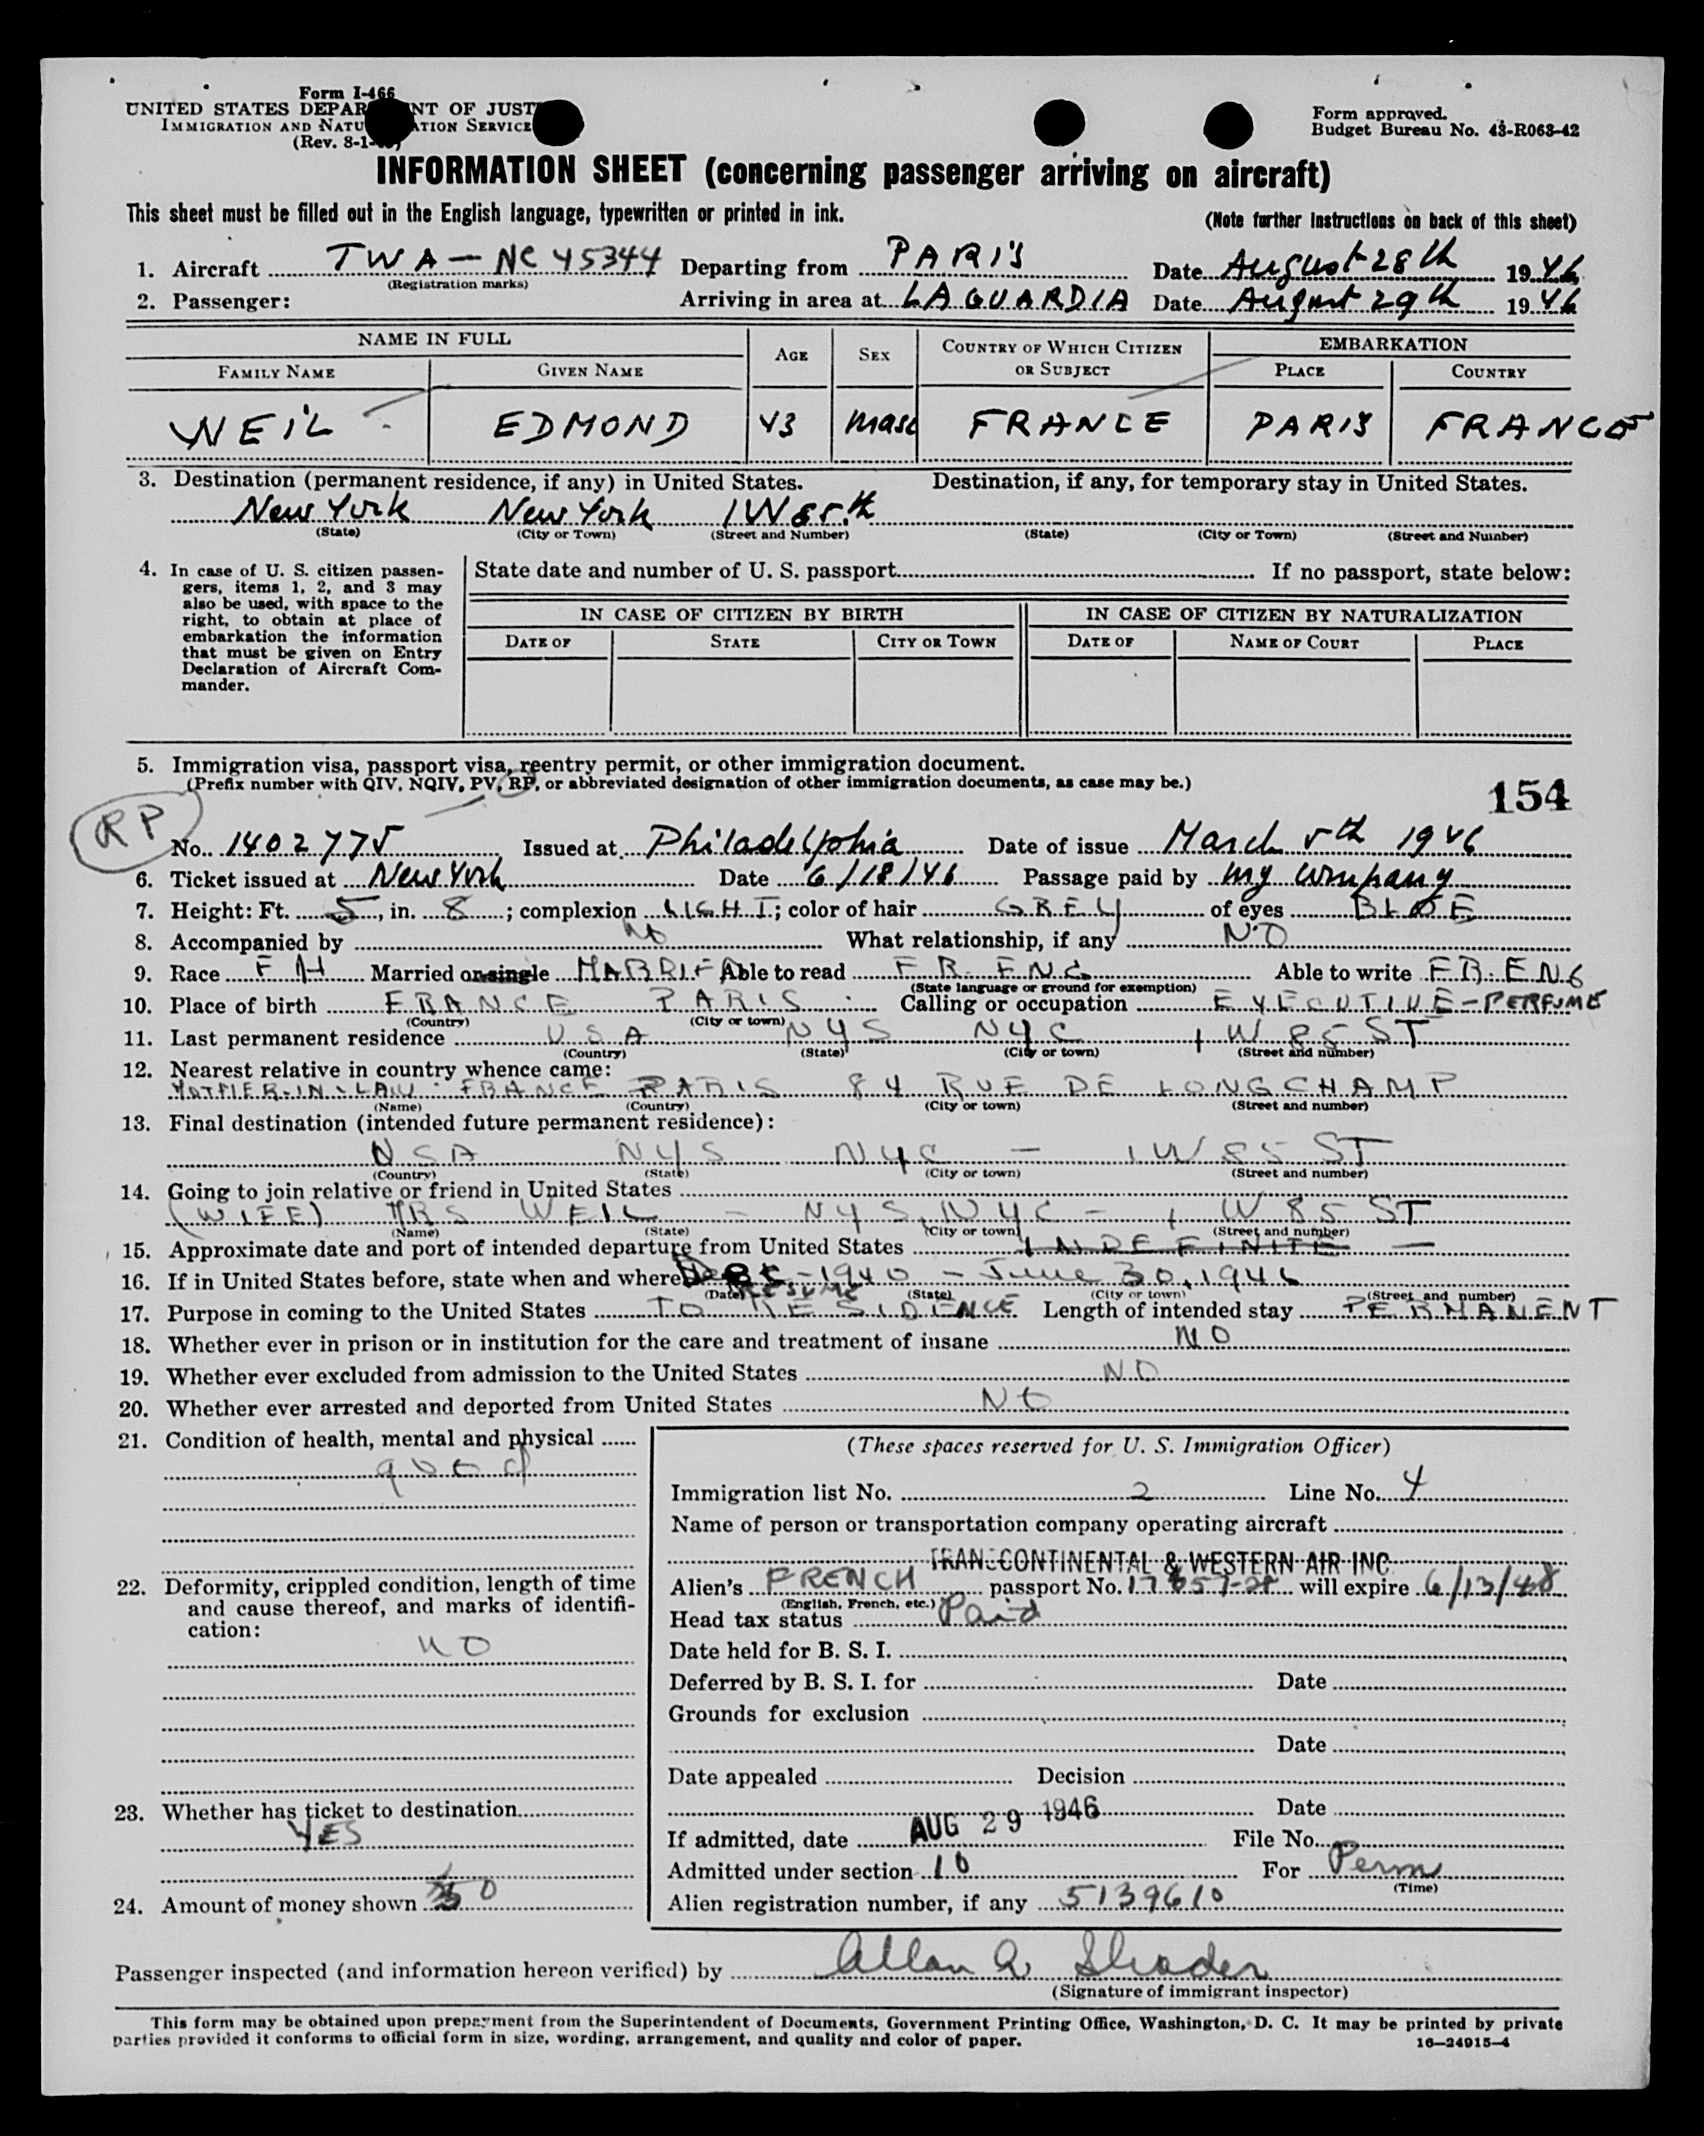 Form I-466
UNITED STATES DEPARTMENT OF JUSTICE
IMMIGRATION AND NATURALIZATION SERVICE
(Rev. 8-1-
Form approved.
Budget Bureau No. 43-R063-42
INFORMATION SHEET (concerning passenger arriving on aircraft)
This sheet must be filled out in the English language, typewritten or printed in ink.
(Note further instructions on back of this sheet)
1. Aircraft TWA - NC 45344 Departing from PARIS Date August 28th 1946
(Registration marks)
2. Passenger: Arriving in area at LA GUARDIA Date August 29th 1946
NAME IN FULL AGE SEX COUNTRY OF WHICH CITIZEN OR SUBJECT EMBARKATION
FAMILY NAME GIVEN NAME PLACE COUNTRY
WEIL EDMOND 43 masc FRANCE PARIS FRANCE
3. Destination (permanent residence, if any) in United States. Destination, if any, for temporary stay in United States.
New York New York 1 W 85th
(State) (City or Town) (Street and Number) (State) (City or Town) (Street and Number)
4. In case of U. S. citizen passen-
gers, items 1, 2, and 3 may
also be used, with space to the
right, to obtain at place of
embarkation the information
that must be given on Entry
Declaration of Aircraft Com-
mander.
State date and number of U. S. passport If no passport, state below:
IN CASE OF CITIZEN BY BIRTH IN CASE OF CITIZEN BY NATURALIZATION
DATE OF STATE CITY OR TOWN DATE OF NAME OF COURT PLACE
5. Immigration visa, passport visa, reentry permit, or other immigration document.
(Prefix number with QIV, NQIV, PV, RP, or abbreviated designation of other immigration documents, as case may be.)
154
RP
No. 1402775 Issued at Philadelphia Date of issue March 5th 1946
6. Ticket issued at New York Date 6/18/46 Passage paid by my company
7. Height: Ft. 5, in. 8; complexion LIGHT; color of hair GREY of eyes BLUE
8. Accompanied by NO What relationship, if any NO
9. Race FH Married or single MARRIED Able to read FR. ENG Able to write FR. ENG
(State language or ground for exemption)
10. Place of birth FRANCE PARIS Calling or occupation EXECUTIVE - PERFUME
(Country) (City or town)
11. Last permanent residence USA NYS NYC 1 W 85 ST
(Country) (State) (City or town) (Street and number)
12. Nearest relative in country whence came:
MOTHER-IN-LAW FRANCE PARIS 84 RUE DE LONGCHAMP
(Name) (Country) (City or town) (Street and number)
13. Final destination (intended future permanent residence):
USA NYS NYC - 1 W 85 ST
(Country) (State) (City or town) (Street and number)
14. Going to join relative or friend in United States
(WIFE) MRS WEIL - NYS, NYC - 1 W 85 ST
(Name) (State) (City or town) (Street and number)
15. Approximate date and port of intended departure from United States INDEFINITE -
16. If in United States before, state when and where Dec - 1940 - June 30, 1946
(Date) (State) (City or town) (Street and number)
17. Purpose in coming to the United States TO RESUME RESIDENCE Length of intended stay PERMANENT
18. Whether ever in prison or in institution for the care and treatment of insane NO
19. Whether ever excluded from admission to the United States NO
20. Whether ever arrested and deported from United States NO
21. Condition of health, mental and physical
good
22. Deformity, crippled condition, length of time
and cause thereof, and marks of identifi-
cation:
NO
23. Whether has ticket to destination
YES
24. Amount of money shown 50
(These spaces reserved for U. S. Immigration Officer)
Immigration list No. 2 Line No. 4
Name of person or transportation company operating aircraft
TRANSCONTINENTAL & WESTERN AIR INC
Alien's FRENCH passport No. will expire 6/13/48
(English, French, etc.)
Head tax status Paid
Date held for B. S. I.
Deferred by B. S. I. for Date
Grounds for exclusion
Date
Date appealed Decision
Date
If admitted, date AUG 29 1946 File No.
Admitted under section 10 For Perm
(Time)
Alien registration number, if any 5139610
Passenger inspected (and information hereon verified) by Allan Q. Shader
(Signature of immigrant inspector)
This form may be obtained upon prepayment from the Superintendent of Documents, Government Printing Office, Washington, D. C. It may be printed by private
parties provided it conforms to official form in size, wording, arrangement, and quality and color of paper. 16-24915-4